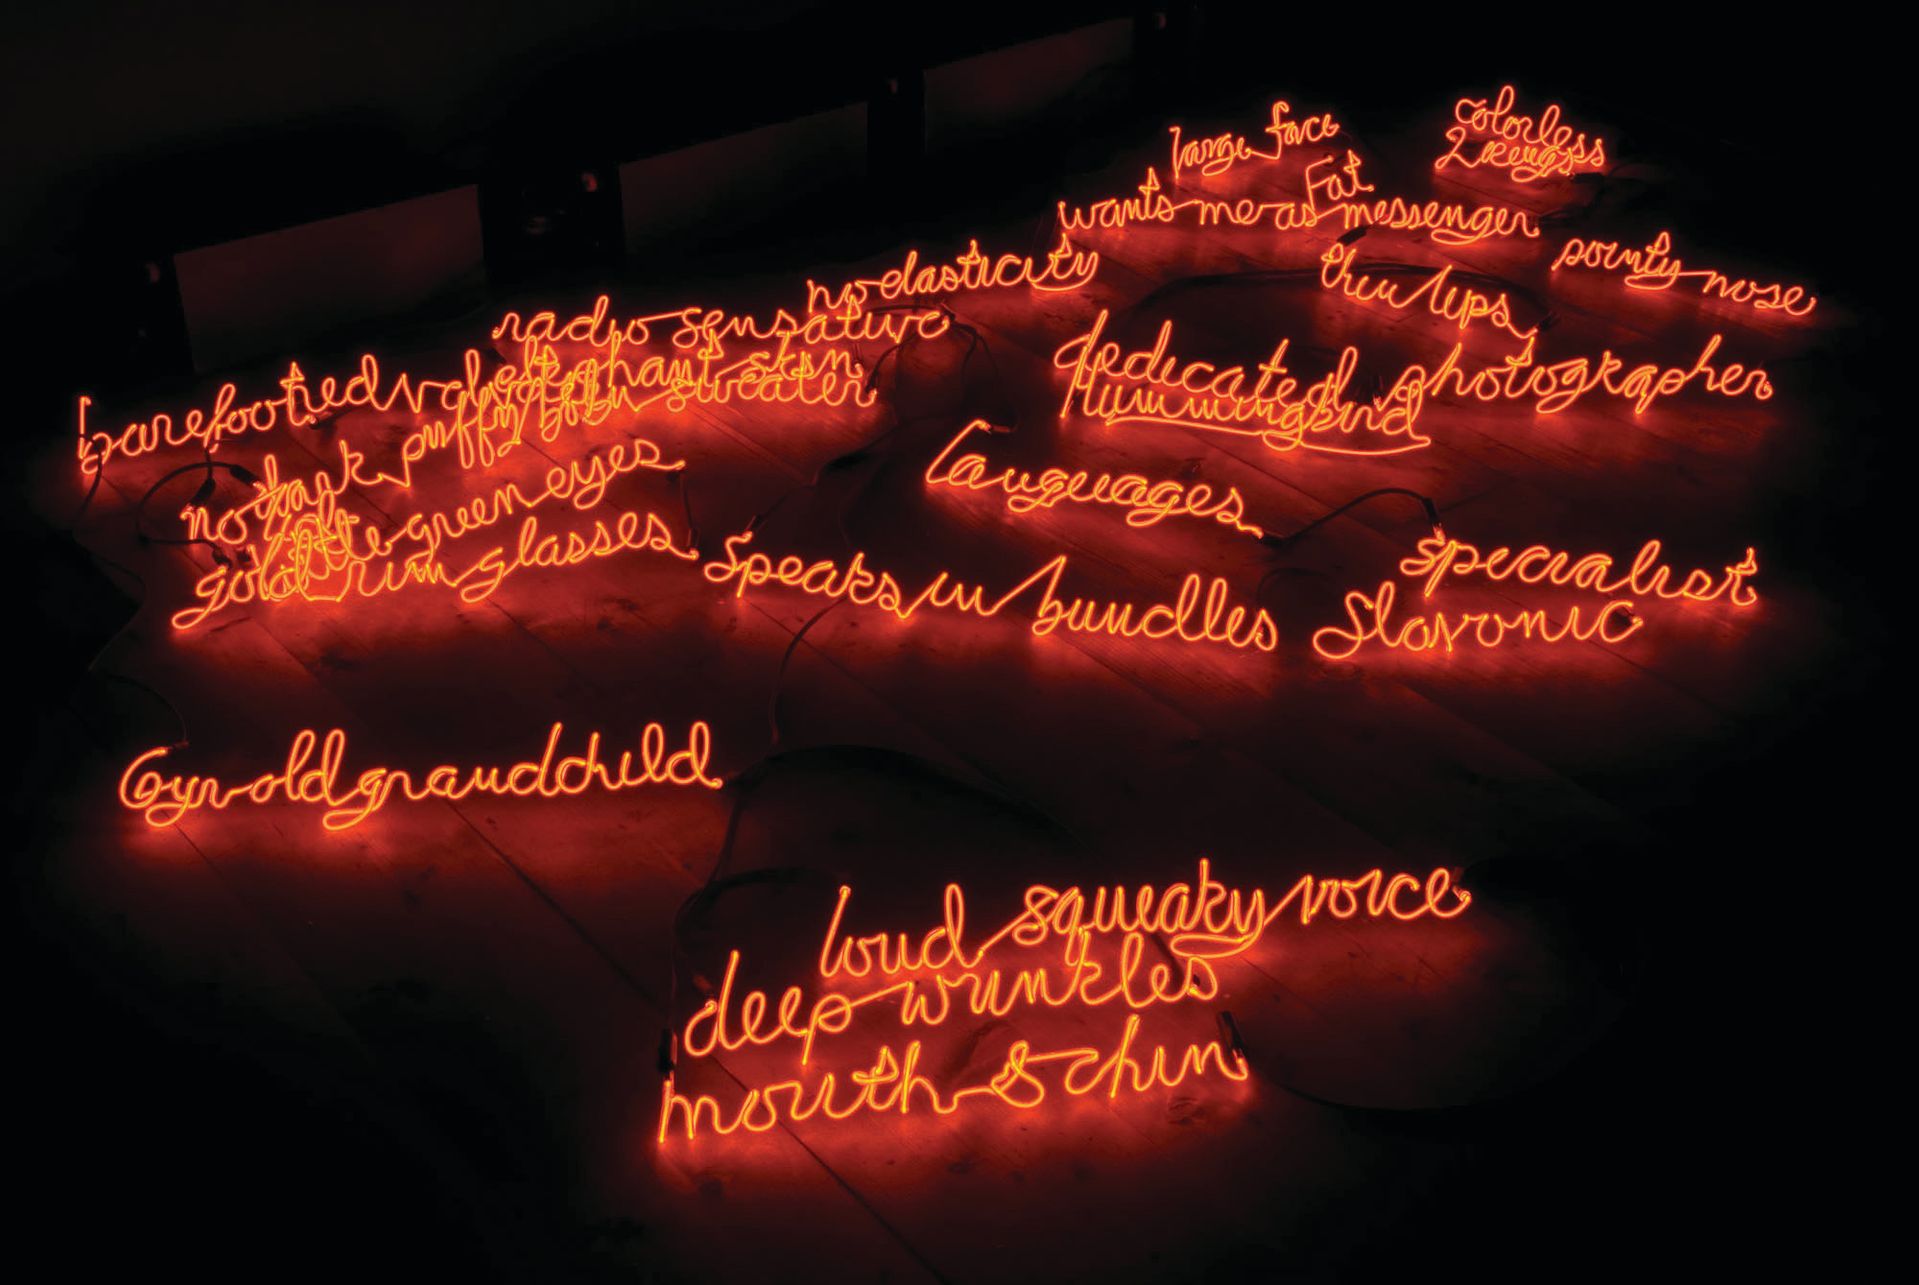 large face
colorless
Fat
wants me as messenger
pointy nose
thin lips
no elasticity
radio sensative
elephant skin
barefooted
puffy
sweater
dedicated photographer
hummingbird
no
green eyes
gold rim glasses
languages
Speaks in bundles
specialist
Slavonic
6yr old grandchild
loud squeaky voice
deep wrinkles
mouth & chin